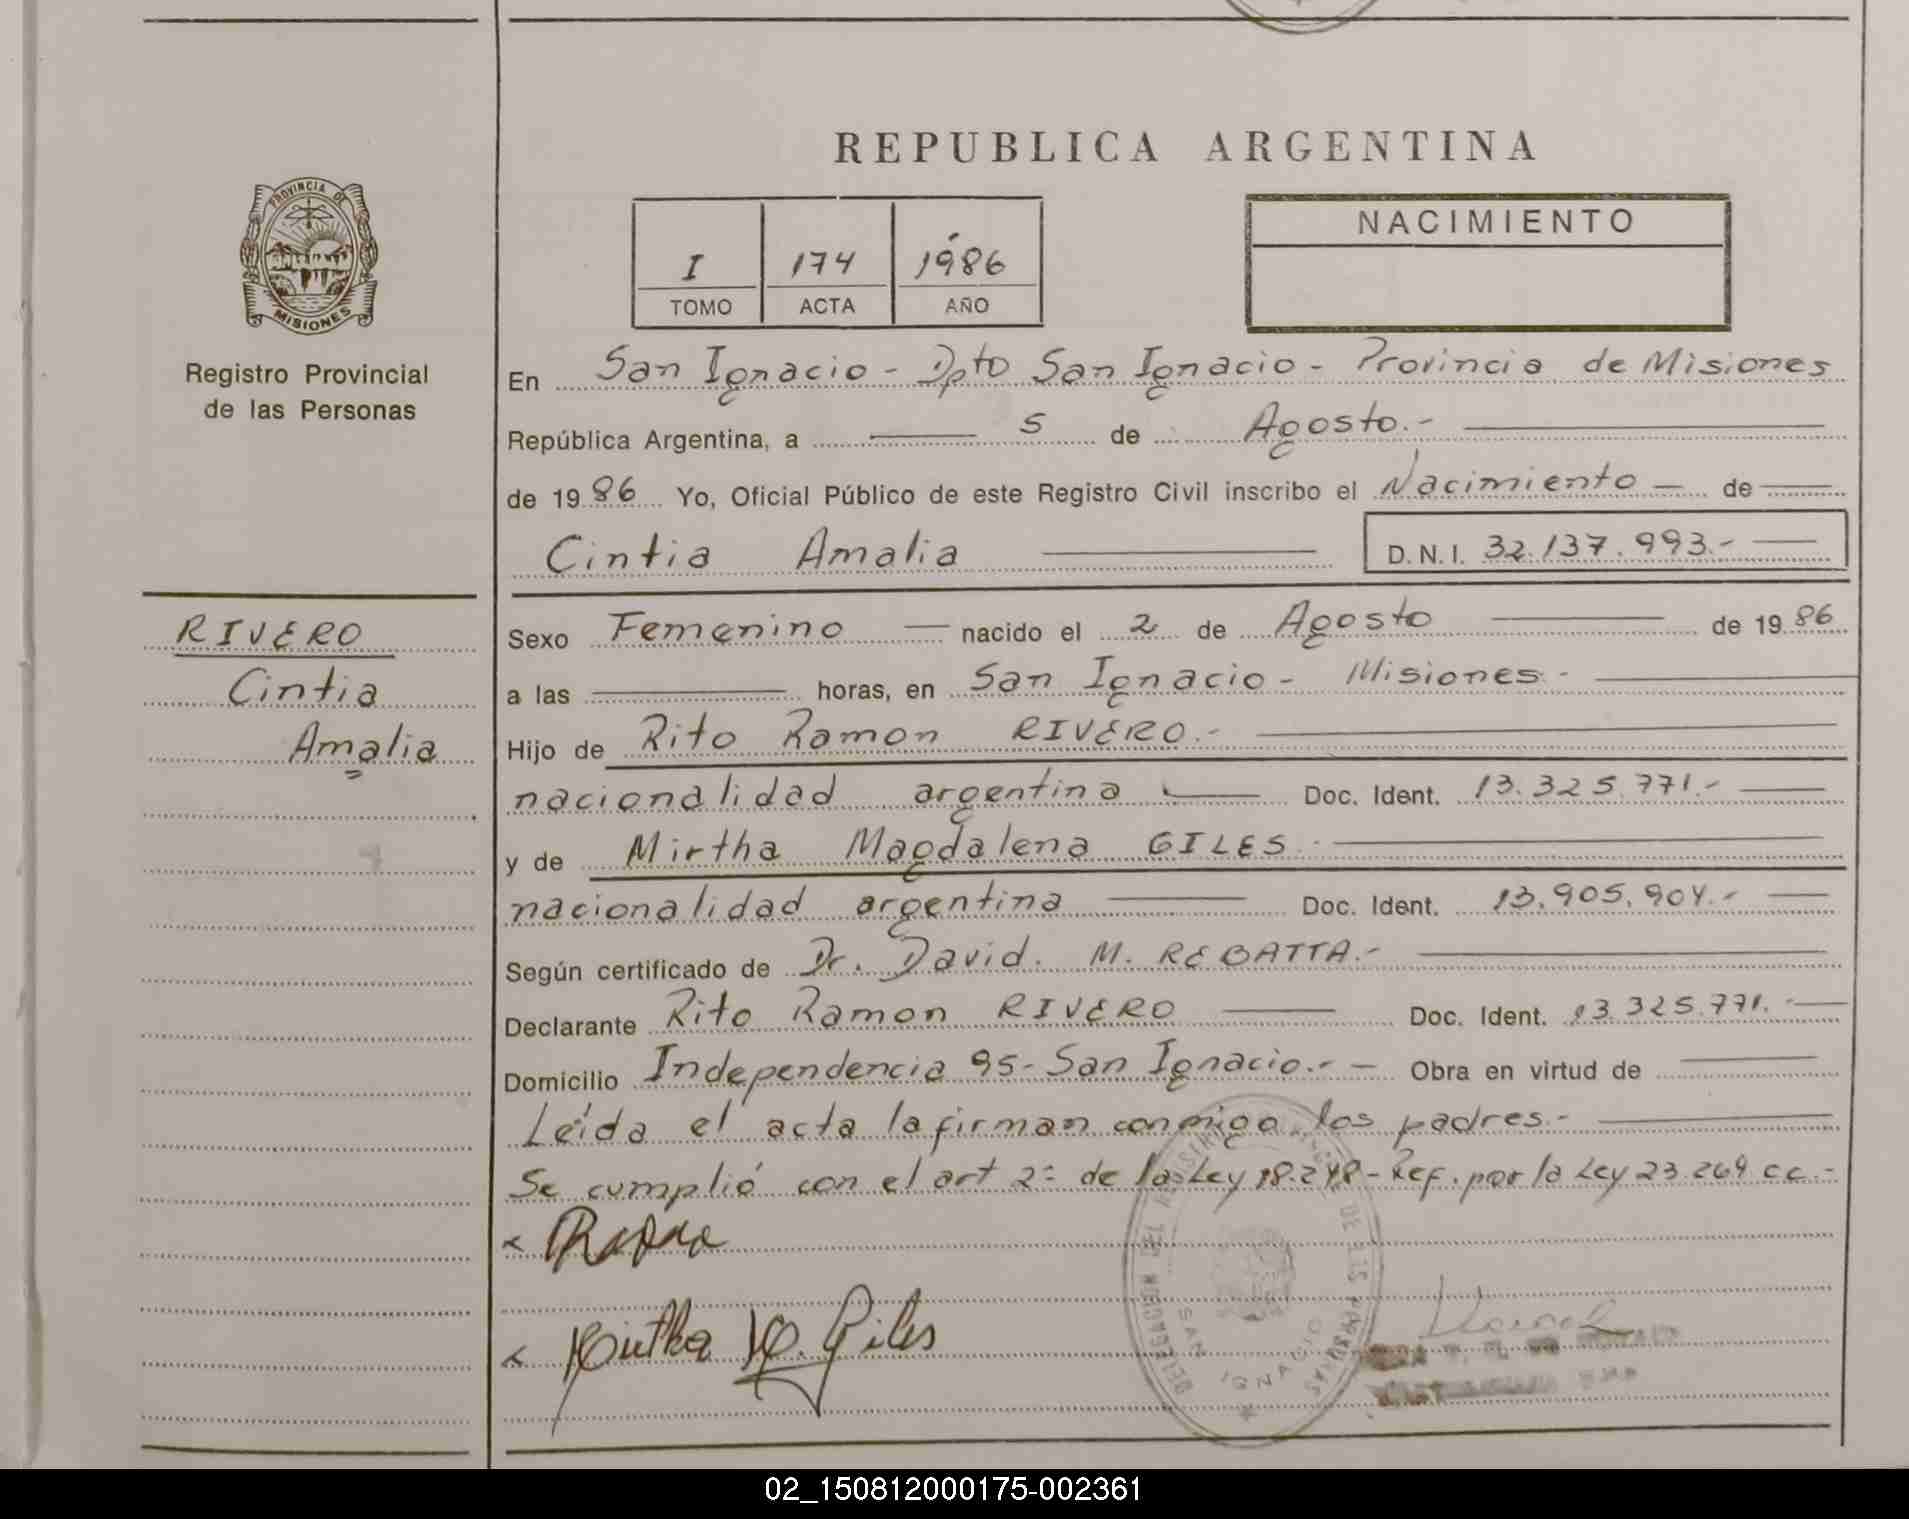 REPUBLICA ARGENTINA
PROVINCIA DE
MISIONES
Registro Provincial
de las Personas
I 174 1986
TOMO ACTA AÑO
NACIMIENTO
En San Ignacio - Dpto San Ignacio - Provincia de Misiones
República Argentina, a 5 de Agosto.-
de 1986 Yo, Oficial Público de este Registro Civil inscribo el Nacimiento - de
Cintia Amalia D.N.I. 32.137.993.-
RIVERO
Cintia
Amalia
Sexo Femenino nacido el 2 de Agosto de 1986
a las horas, en San Ignacio - Misiones.-
Hijo de Rito Ramon RIVERO.-
nacionalidad argentina Doc. Ident. 13.325.771.-
y de Mirtha Magdalena GILES.
nacionalidad argentina Doc. Ident. 13.905.904.-
Según certificado de Dr. David. M. REBATTA.-
Declarante Rito Ramon RIVERO Doc. Ident. 13.325.771.-
Domicilio Independencia 95 - San Ignacio.- Obra en virtud de
Leída el acta la firman conmigo los padres.-
Se cumplió con el art 2º de la Ley 18.248 - Ref. por la Ley 23.264 cc.-
Mirtha M. Giles
DELEGACION
DE LAS PERSONAS
SAN IGNACIO
02_150812000175-002361